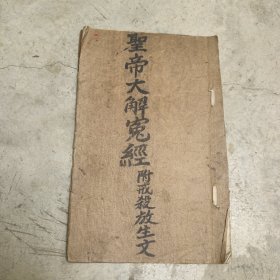 聖帝大解冤經
附戒殺放生文